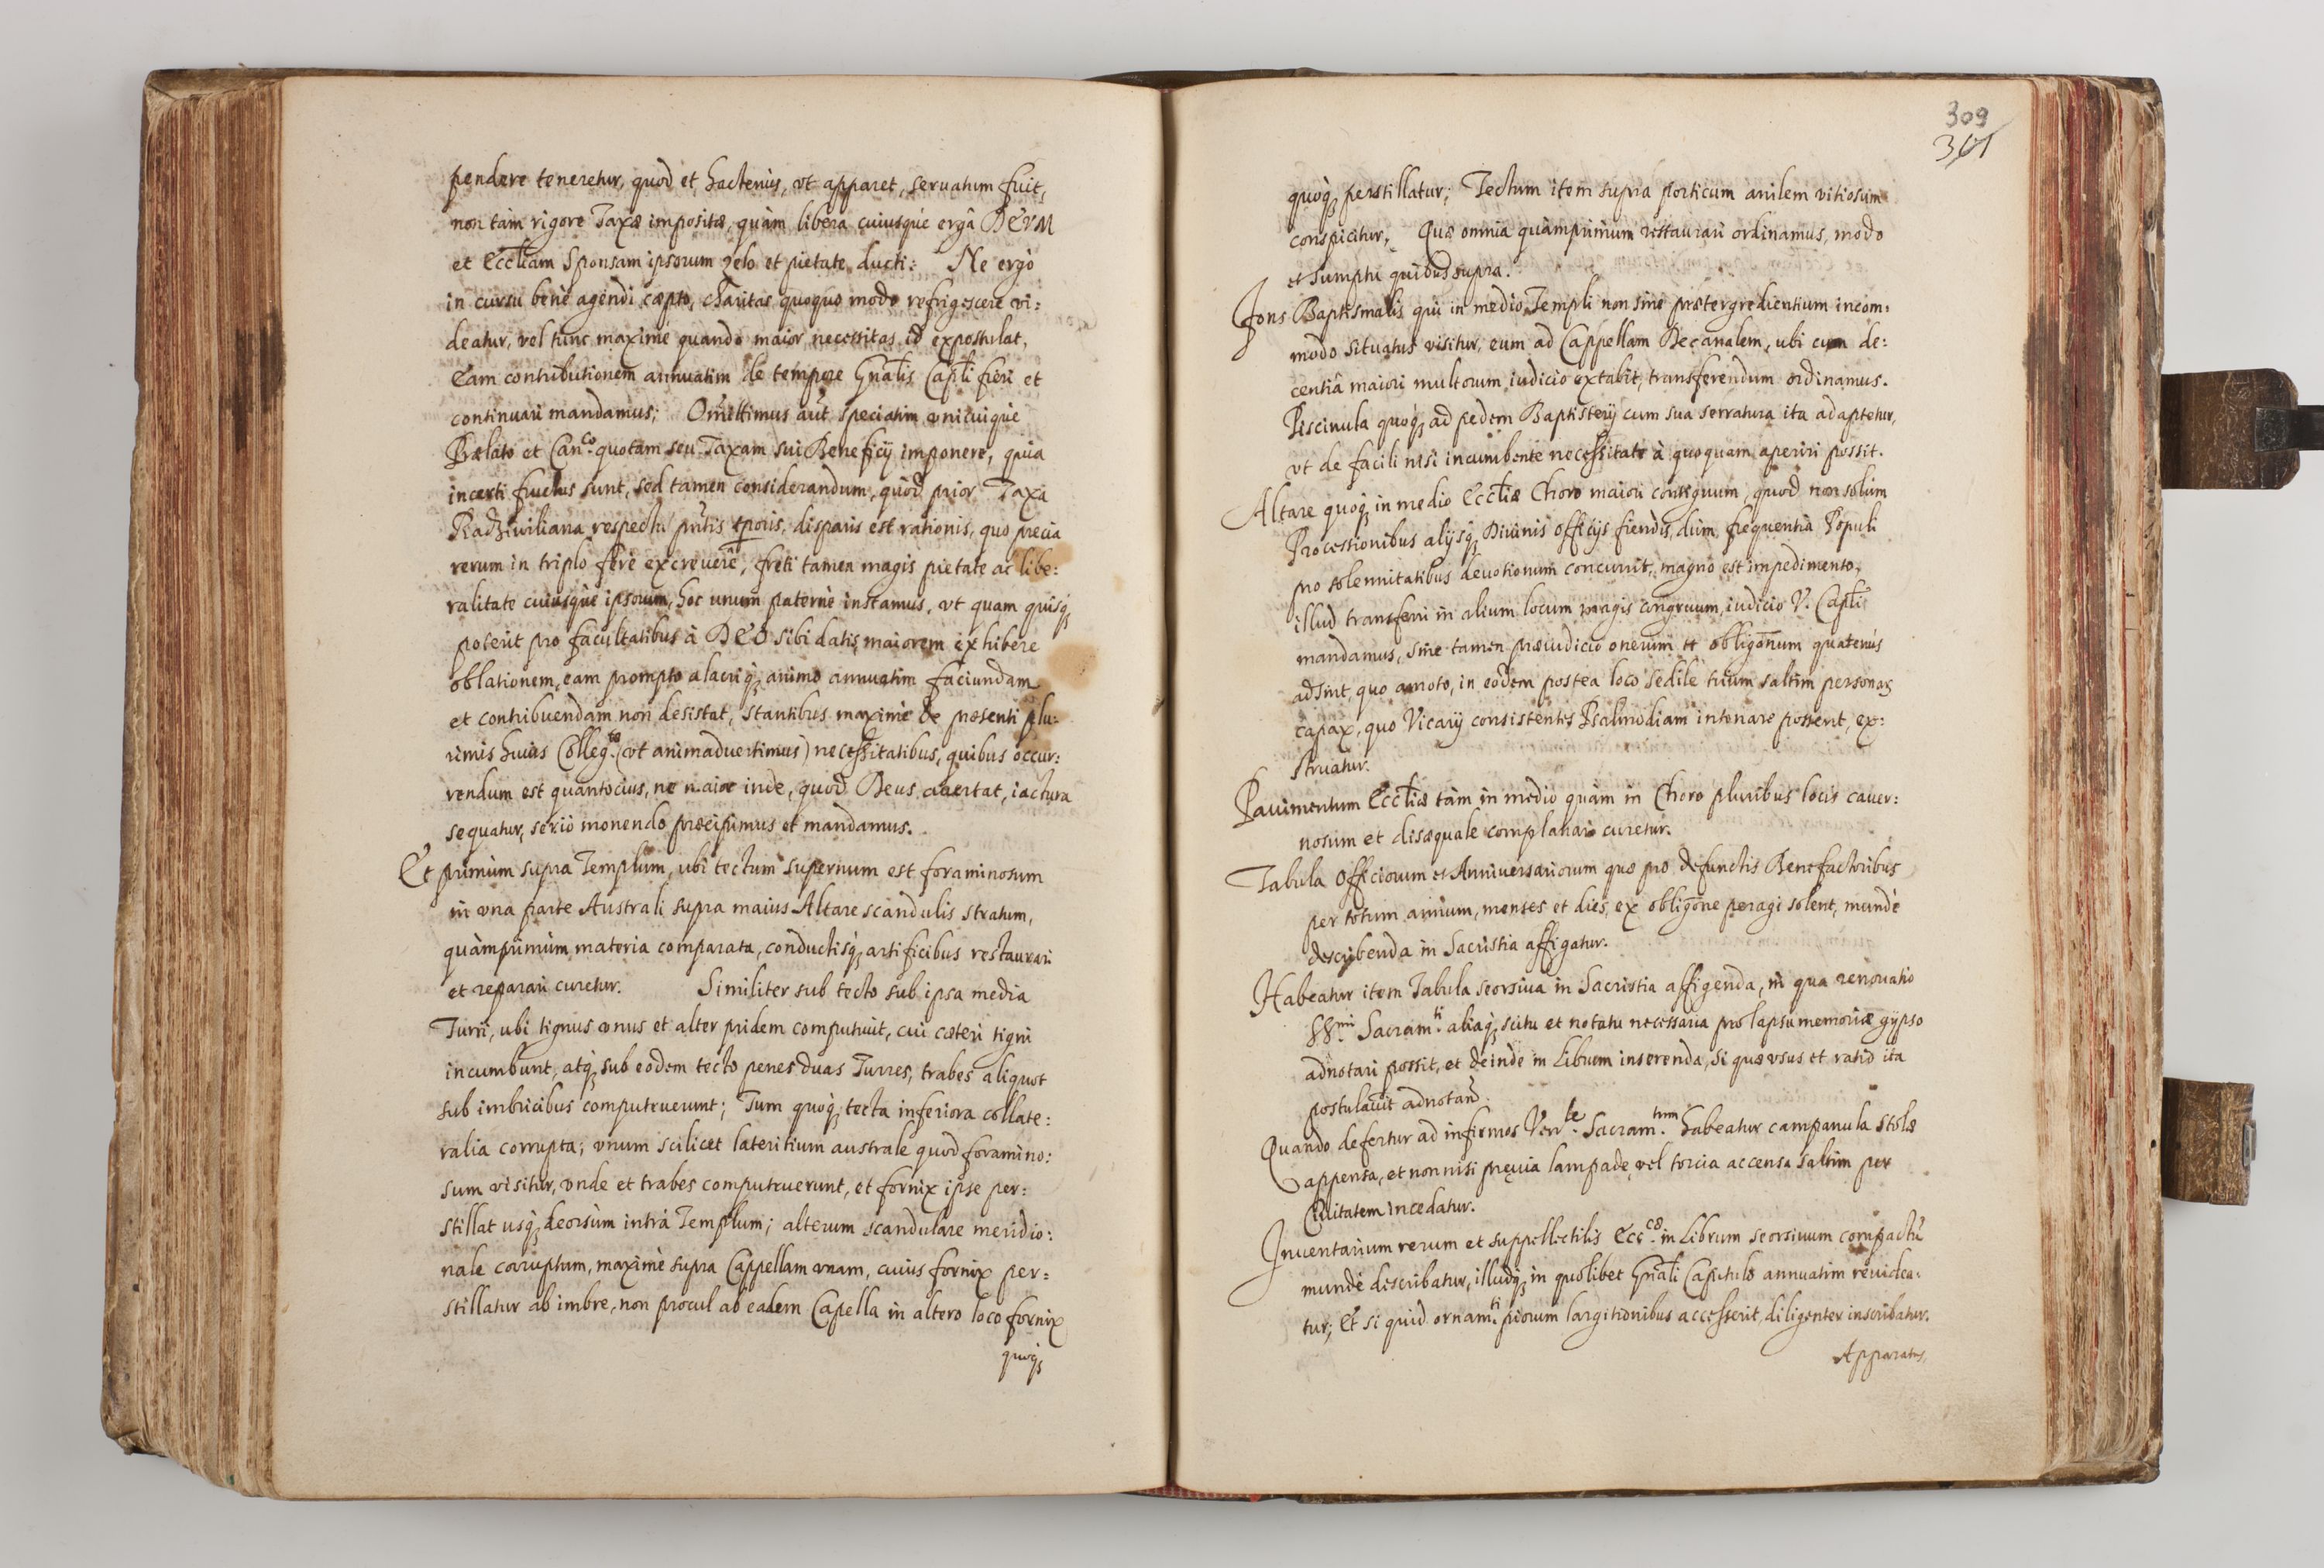 pendere teneretur, quod et hactenùs, vt apparet, seruatum fuit,
non tàm rigore Taxæ impositæ, quàm libera cuiusque ergà DEVM
et Eccłiam Sponsam ipsorum zelo et pietate ducti: Ne ergò
in cursu benè agendi cœpto, charitas quoquo modo refrigescere vi:
deatur, vel tunc maximè quando maior necessitas id expostulat,
Eam contributionem annuatim de tempore Gnalis Capłi fieri et
continuari mandamus; Omittimus aũt speciatim vnicuique
Prælato et Can.co quotam seu Taxam sui Beneficij imponere, quia
incerti fructus sunt, sed tamen considerandum, quòd prior Taxa
Radziwiliana respectu pntis tporis, disparis est rationis, quo precia
rerum in triplo ferè excreuerẽ, freti tamen magis pietate ac libe:
ralitate cuiusque ipsorum, hoc unum paternè instamus, vt quam quisq;
poterit pro facultatibus à DEO sibi datis, maiorem exhibere
oblationem, eam prompto alacriq; animo annuatim faciundam
et contribuendam non desistat, stantibus maximè de præsenti plu:
rimis huius Colleg.tæ (vt animaduertimus) necessitatibus, quibus occur:
rendum est quantocius, ne maior inde, quod Deus auertat, iactura
sequatur, seriò monendo præcipimus et mandamus.
Et primùm supra Templum, ubi tectum supernum est foraminosum
in vna parte Australi supra maius Altare scandulis stratum,
quàmprimùm materia comparata, conductisq; artificibus restaurari
et reparari curetur. Similiter sub tecto sub ipsa media
Turri, ubi tignus vnus et alter pridem computruit, cui cæteri tigni
incumbunt, atq; sub eodem tecto penes duas Turres, trabes aliquot
sub imbricibus computruerunt; Tum quoq; tecta inferiora collate:
ralia corrupta; vnum scilicet lateritium australe quod foramino:
sum visitur, vnde et trabes computruerunt, et fornix ipse per:
stillat usq; deorsùm intrà Templum; alterum scandulare meridio:
nale coruptum, maximè supra Cappellam vnam, cuius fornix per:
stillatur ab imbre, non procul ab eadem Capella in altero loco fornix
quoq;
309
301
quoq; perstillatur; Tectum item supra porticum anilem vitiosum
conspicitur, Quæ omnia quàmprimùm restaurari ordinamus, modo
et sumptu quibus supra.
Fons Baptismalis qui in medio Templi non sine prætergredientium incom:
modo situatus visitur, eum ad Cappellam Decanalem, ubi cum de:
centiâ maiori multorum iudicio extabit, transferendum ordinamus.
Piscinula quoq; ad pedem Baptisterij cum sua serratura ita adaptetur,
vt de facili nisi incumbente necessitate à quoquam aperiri possit.
Altare quoq; in medio Eccłiæ Choro maiori contiguum, quod non solùm
Processionibus alijsq; Diuinis Officijs fiendis, dùm frequentia Populi
pro solennitatibus deuotionum concurrit, magno est impedimento,
illud transferri in alium locum magis congruum, iudicio V. Capłi
mandamus, sine tamen præiudicio onerum et obligonum quatenùs
adsint, quo amoto, in eodem postea loco sedile trium saltim personar
capax, quo Vicarij consistentes Psalmodiam intonare possent, ex:
struatur.
Pauimentum Eccłiæ tàm in medio quàm in Choro pluribus locis cauer:
nosum et disæquale complanari curetur.
Tabula Officiorum et Anniuersariorum quæ pro defunctis Benefactoribus
per totum annum, menses et dies, ex obligone peragi solent, mundè
describenda in Sacristia affigatur.
Habeatur item Tabula seorsiua in Sacristia affigenda, in qua renouatio
SS.mi Sacram.ti aliaq; scitu et notatu necessaria pro lapsu memoriæ gypso
adnotari possit, et deindè in Librum inserenda, si quæ vsus et ratio ita
postulauit adnotand.
Quando defertur ad infirmos Ven.le Sacram.tum habeatur campanula stolæ
appensa, et non nisi preuia lampade, vel torcia accensa saltim per
Ciuitatem incedatur.
Inuentarium rerum et suppellectilis Ecc.cæ in Librum seorsiuum compactũ
mundè describatur, illudq; in quolibet Gnali Capitulo annuatim reuidea:
tur; Et si quid ornam.ti piorum largitionibus accesserit, diligenter inscribatur.
Apparatus